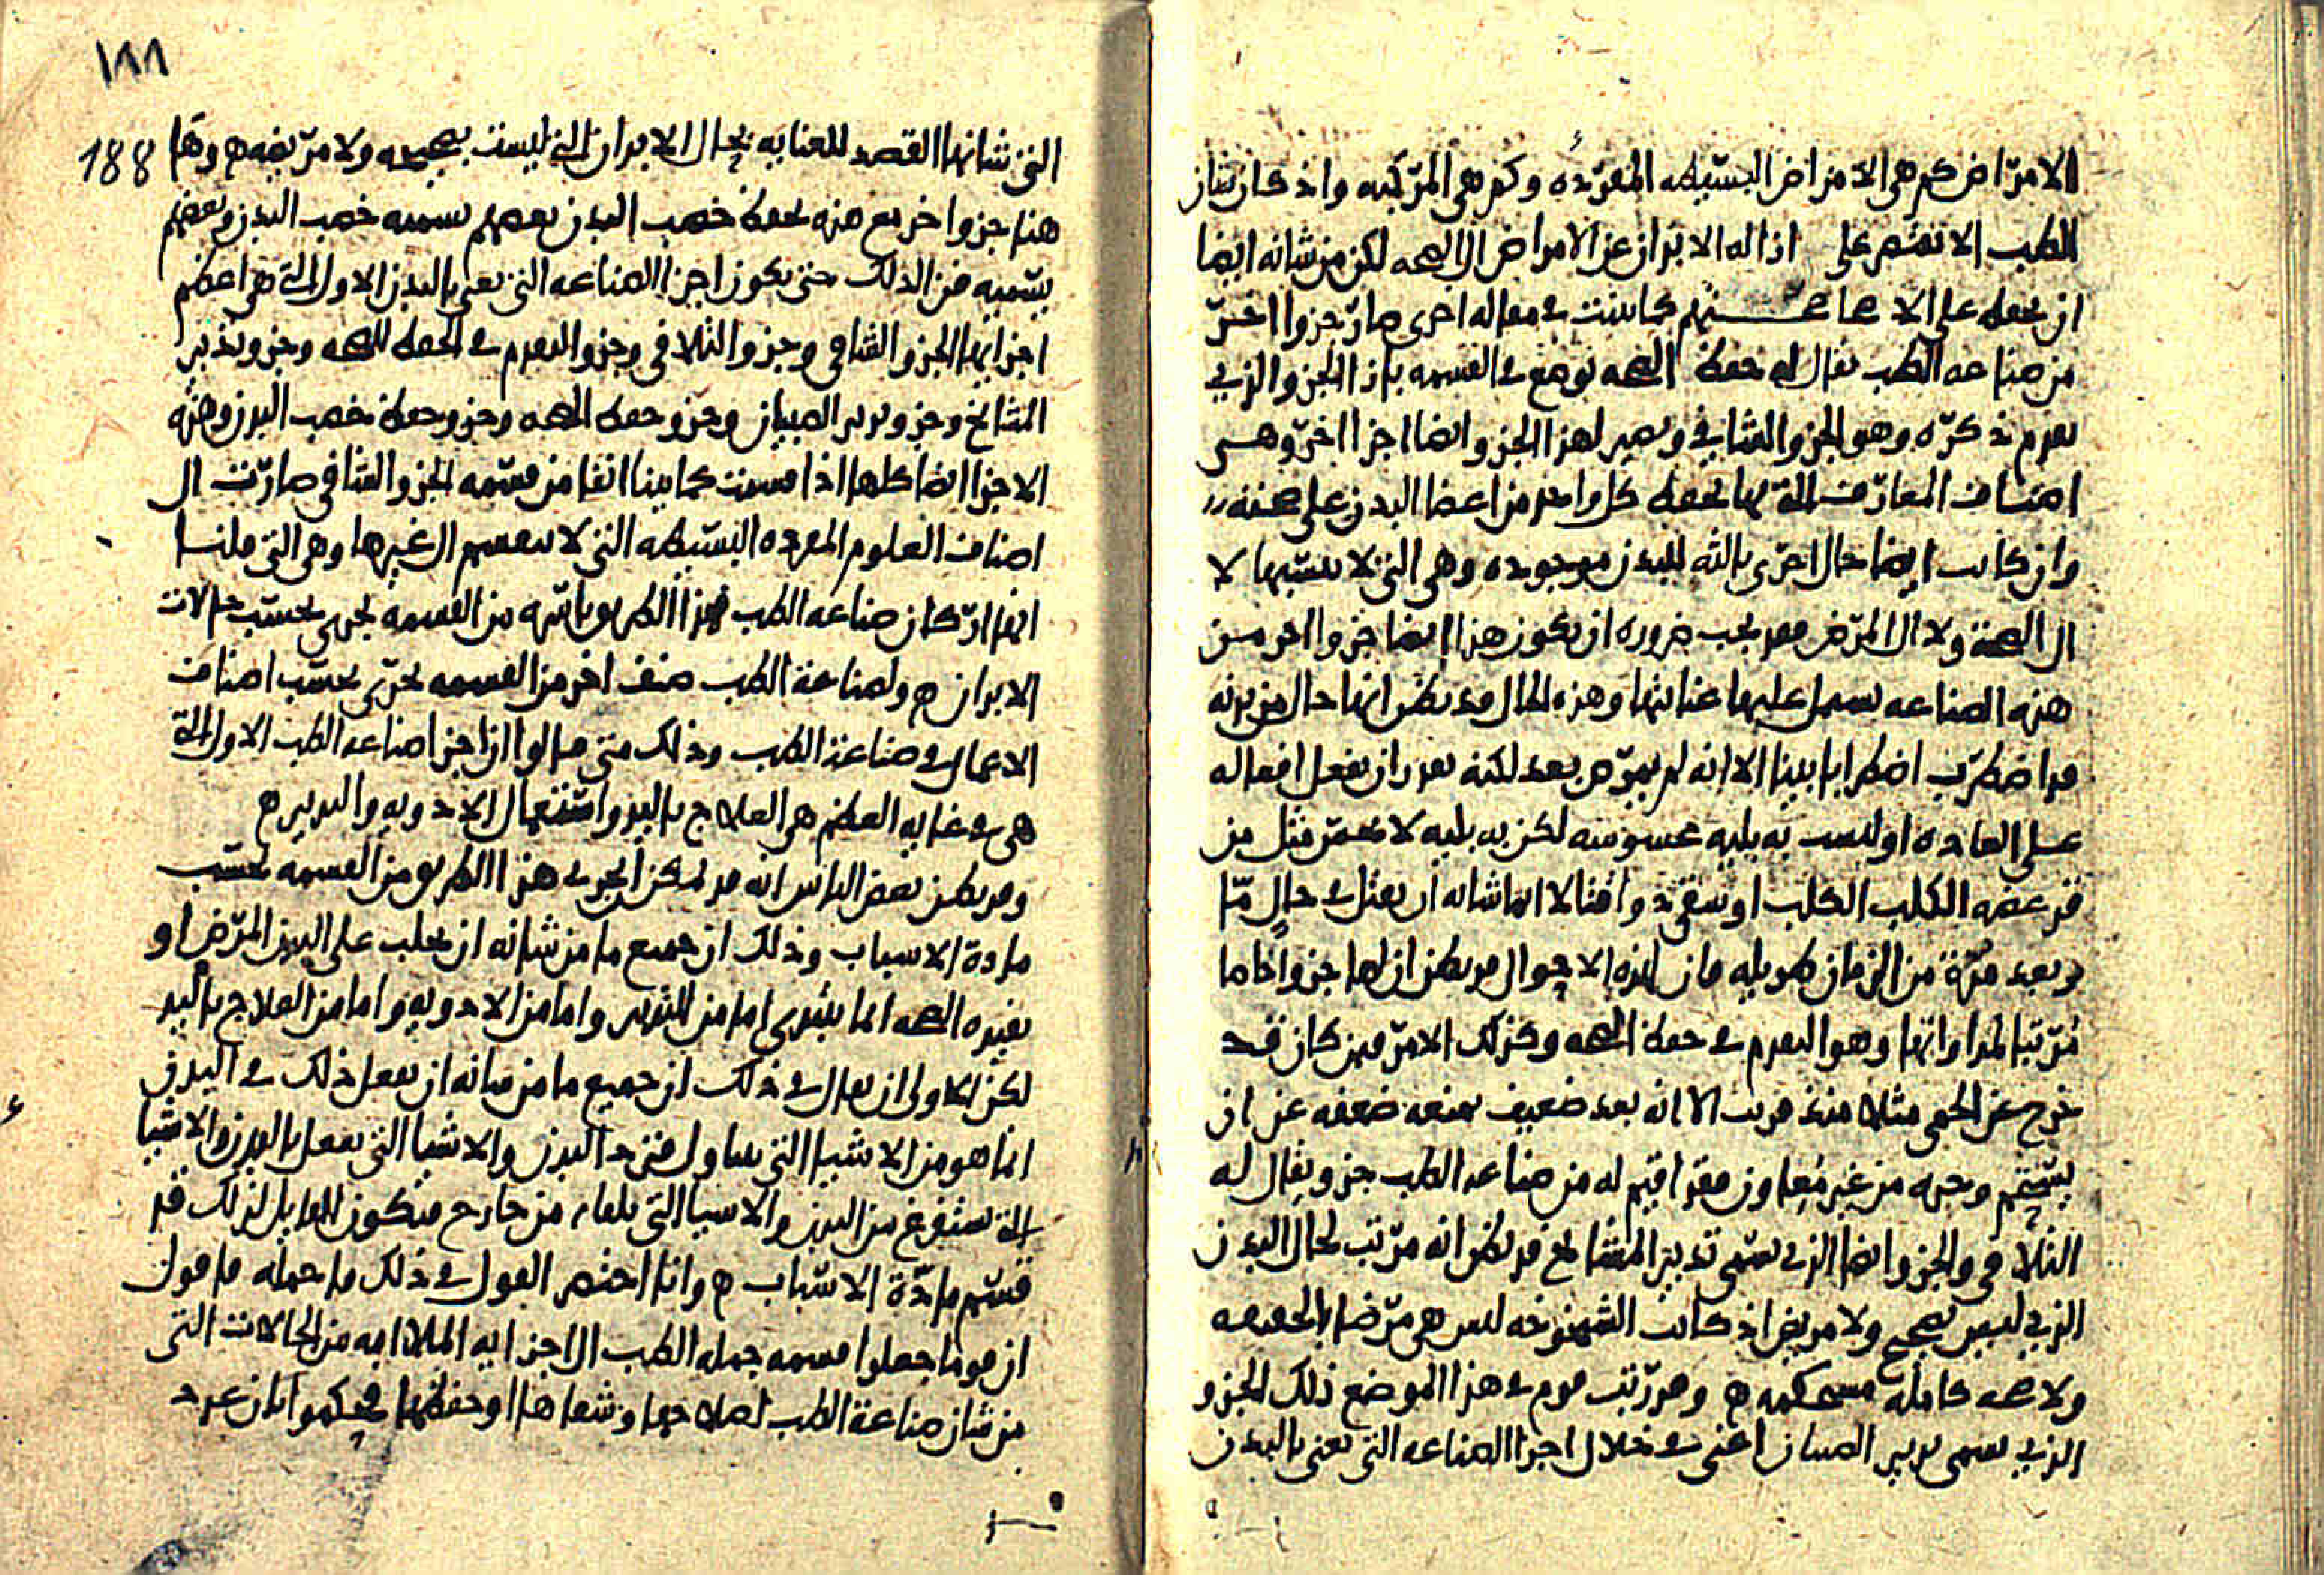 الامراض كم هي الامراض البسيطه المفرده وكم هي المركبه واذ كان شان
الطب الا تقتصر على ازاله الابدان عن الامراض الى الصحه لكن من شانه ايضا
ان يحفظ على الاصحا صحتهم كما بينت في مقاله اخرى صار جزوا اخر
من صناعه الطب يقال له حفظ الصحه يوضع في القسمه بازا الجزو الذي
تقدم ذكره وهو الجزو الشافي ويصير لهذا الجزو ايضا اجزا اخر وهي
اصناف المعارف التي بها يحفظ كل واحد من اعضا البدن على صحته
وان كانت ايضا حال اخرى ثالثه للبدن موجوده وهي التي لا ينسبها لا
الى الصحة ولا الى المرض فقد يجب ضروره ان يكون هذا ايضا جزوا اخر من
هذه الصناعه يشمل عليها عنايتها وهذه الحال قد يظن انها حال من بدنه
قد اضطرب اضطرابا بينا الا انه لم يمرض بعد لكنه يقدر ان يفعل افعاله
على العاده او ليست به بليه محسوسه لكن به بليه لا تضمر مثل من
قد عضه الكلب الكلب او سقي دوا قتالا انما شانه ان يقتل في حال ما
وبعد مدة من الزمان طويله فان هذه الاحوال قد يظن ان لها جزوا خاصا
مرتبا لمداواتها وهو التقدم في حفظ الصحه وكذلك الامر فيمن كان قد
خرج عن الحمى مثلا منذ قريب الا انه بعد ضعيف يمنعه ضعفه عن ان
يستتم وحده من غير معاون فقد اقيم له من صناعه الطب جزو يقال له
التلافي والجزو ايضا الذي يسمى تدبير المشايخ قد يظن انه مرتب لحال البدن
الذي ليس بصحيح ولا مريض اذ كانت الشيخوخه ليس هي مرضا بالحقيقه
ولا صحه كامله مستحكمه ه وقد رتب قوم في هذا الموضع ذلك الجزو
الذي يسمى تدبير الصبيان اعني في خلال اجزا الصناعه التي تعنى بالبدن
١٨٨
188
التي شانها القصد للعنايه بحال الابدان التي ليست بصحيحه ولا مريضه ه وها
هنا جزو اخر مع هذه يحفظ خصب البدن بعضهم يسميه خصب البدن وبعضهم
يسميه فن الدلك حتى يكون اجزا الصناعه التي تعنى بالبدن الاول التي هي اعظم
اجزايها الجزو الشافي وجزو التلافي وجزو التقدم في الحفظ للصحه وجزو تدبير
المشايخ وجزو تدبير الصبيان وجزو حفظ الصحه وجزو حفظ خصب البدن وهذه
الاجزا ايضا كلها اذا قسمت كما بينا انفا من قسمه الجزو الشافي صارت الى
اصناف العلوم المفرده البسيطه التي لا تنقسم الى غيرها وهي التي قلنا
انها اركان صناعه الطب فهذا الطريق باسره من القسمه يجري بحسب حالات
الابدان ه ولصناعة الطب صنف اخر من القسمه يجري بحسب اصناف
الاعمال في صناعة الطب وذلك متى قالوا ان اجزا صناعه الطب الاول التي
هي في غايه العظم هي العلاج باليد واستعمال الادويه والتدبير ه
وقد يظن بعض الناس انه قد يمكن ان يجري هذا الطريق من القسمه بحسب
مادة الاسباب وذلك ان جميع ما من شانه ان يجلب على البدن المرض او
يفيده الصحه انما يبتدي اما من التدبير واما من الادويه واما من العلاج باليد
لكن الاولى ان يقال في ذلك ان جميع ما من شانه ان يفعل ذلك في البدن
انما هو من الاشيا التي يتناول فترد البدن والاشيا التي يفعل بالبدن والاشيا
التي تستفرغ من البدن والاشيا التي يلقاه من خارج فيكون القايل لذلك قد
قسم مادة الاسباب ه وانا احضر القول في ذلك ما جمله فاقول
ان قوما جعلوا قسمه جمله الطب الى اجزايه الملاايه من الحالات التي
من شان صناعة الطب اصلاحها وشفاها او حفظها فحكموا بان عدد